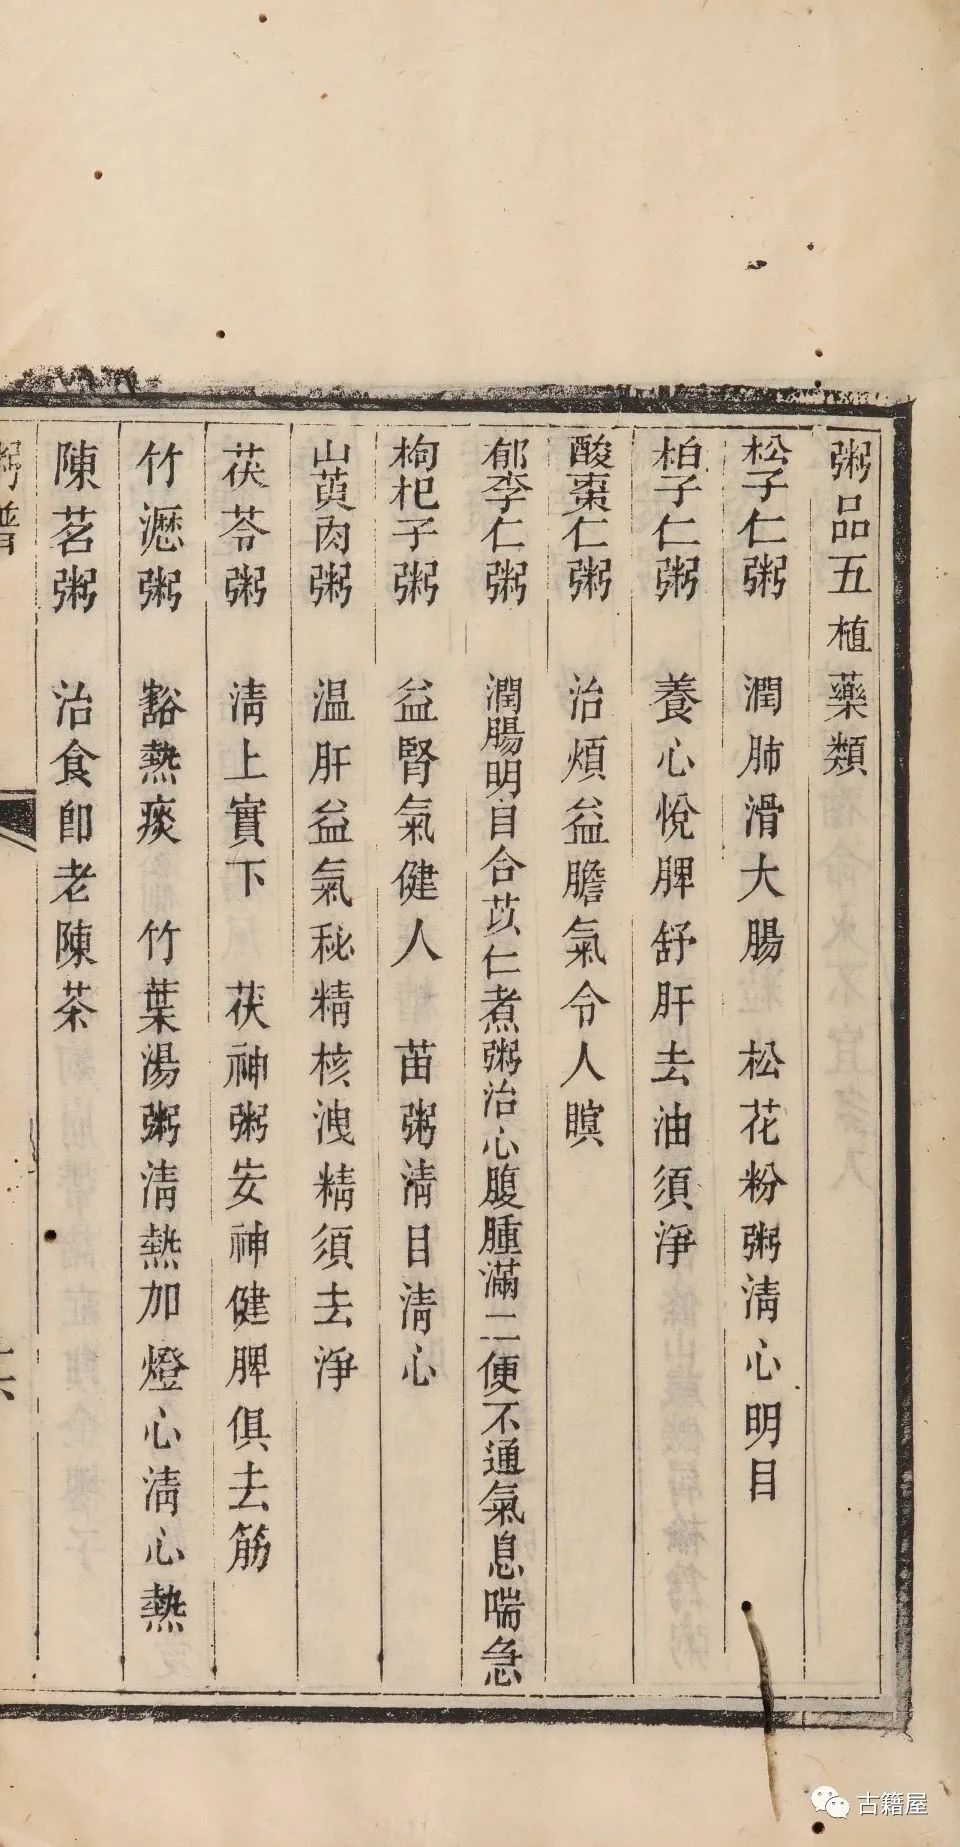 粥品五植藥類
松子仁粥　潤肺滑大腸　松花粉粥淸心明目
柏子仁粥　養心悅脾舒肝去油須淨
酸棗仁粥　治煩益膽氣令人瞑
郁李仁粥　潤腸明目合苡仁煮粥治心腹腫滿二便不通氣息喘急
枸杞子粥　益腎氣健人　苗粥淸目淸心
山萸肉粥　温肝益氣秘精核洩精須去淨
茯苓粥　淸上實下　茯神粥安神健脾俱去筋
竹瀝粥　豁熱痰　竹葉湯粥淸熱加燈心淸心熱
陳茗粥　治食卽老陳茶
粥譜
古籍屋